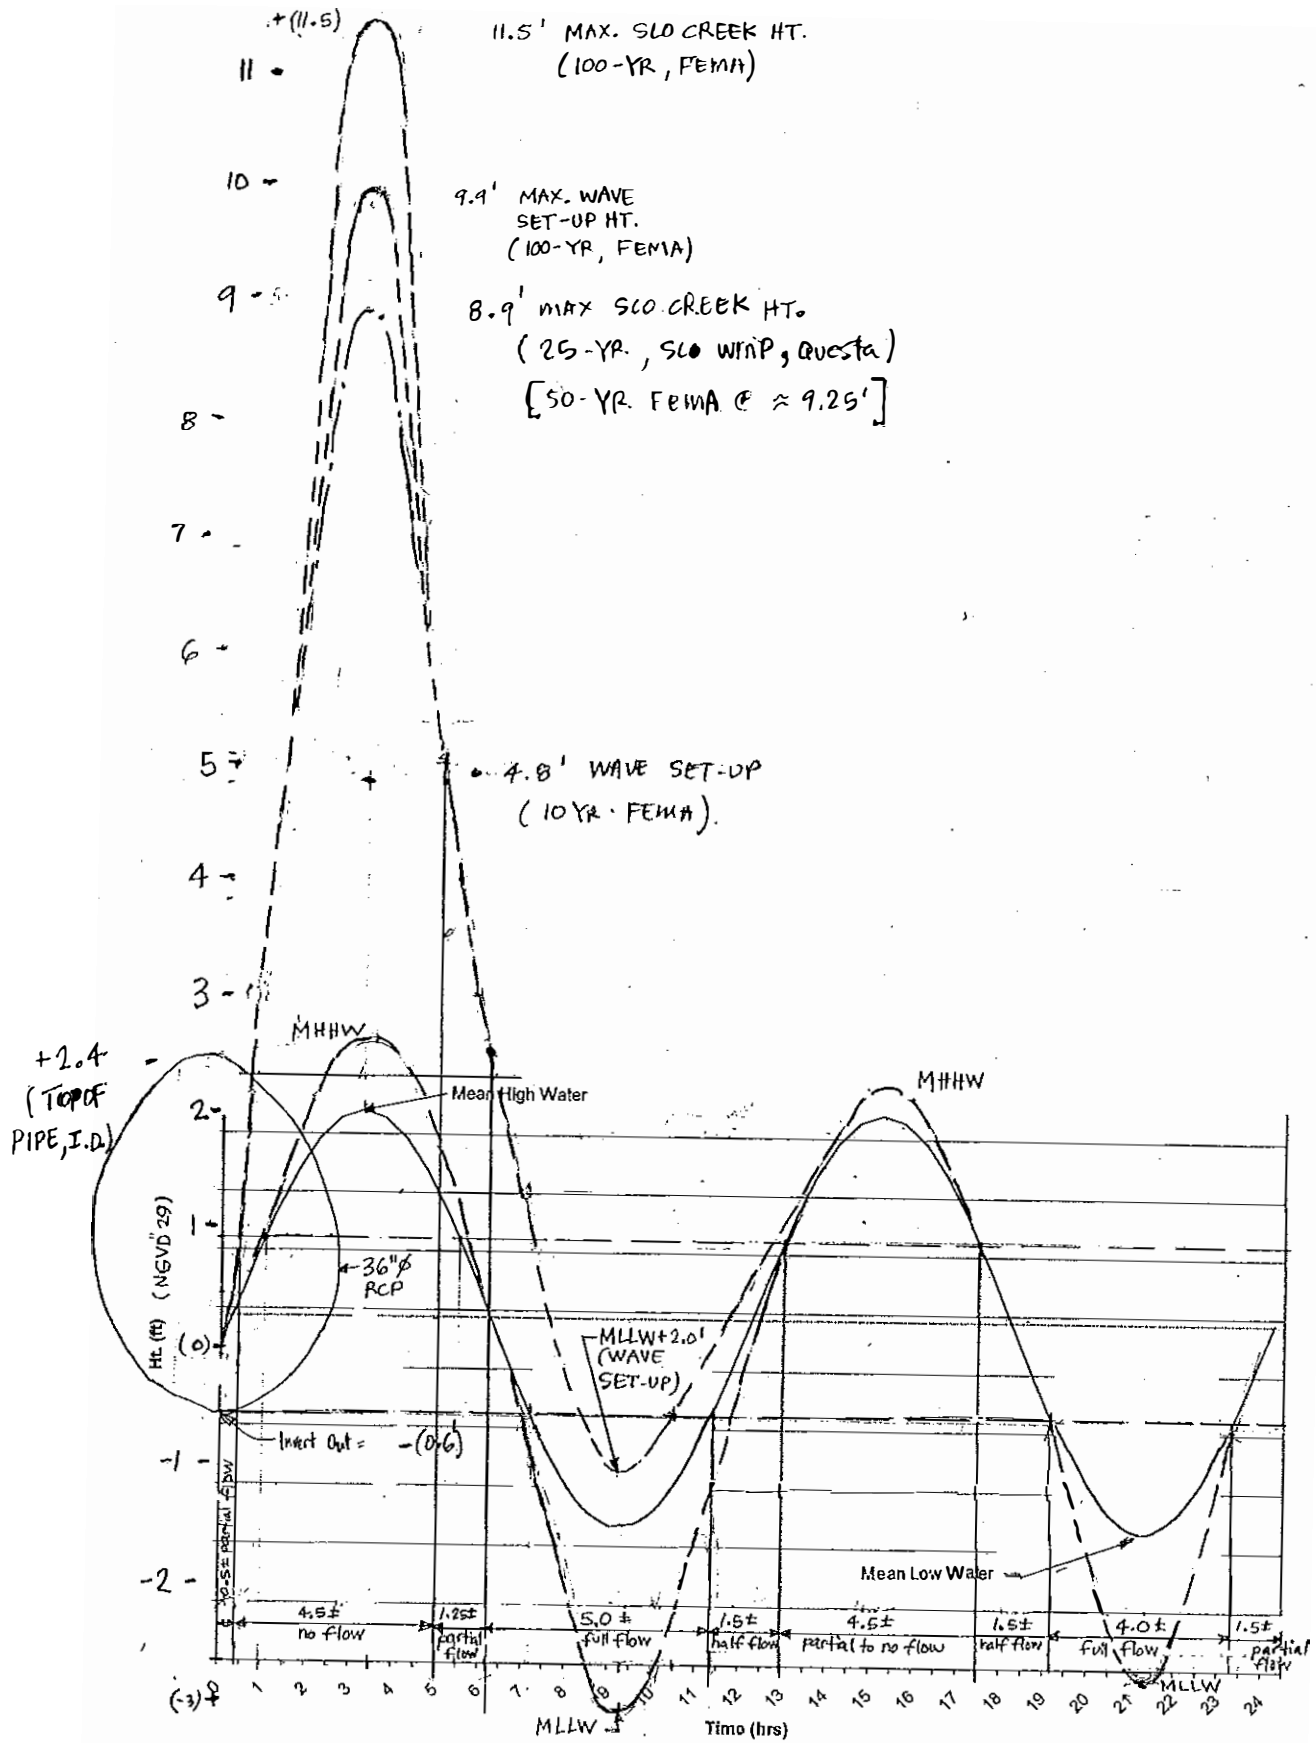 +(11.5)
11.5' MAX. SLO CREEK HT.
(100-YR, FEMA)
11
10
9.9' MAX. WAVE
SET-UP HT.
(100-YR, FEMA)
9
8.9' MAX SLO CREEK HT.
(25-YR., SLO WMP, Questa)
[50-YR. FEMA @ ≈ 9.25']
8
7
6
5
4.8' WAVE SET-UP
(10 YR. FEMA).
4
3
MHHW
+2.4
(TOP OF
PIPE, I.D.)
Mean High Water
MHHW
2
1
36"Ø
RCP
Ht. (ft) (NGVD 29)
(0)
MLLW+2.0'
(WAVE
SET-UP)
Invert Out = -(0.6')
-1
Mean Low Water
-2
0.5± partial flow
4.5±
no flow
1.25±
partial
flow
5.0 ±
full flow
1.5±
half flow
4.5±
partial to no flow
1.5±
half flow
4.0 ±
full flow
1.5±
partial
flow
(-3)
0 1 2 3 4 5 6 7 8 9 10 11 12 13 14 15 16 17 18 19 20 21 22 23 24
MLLW
MLLW
Time (hrs)